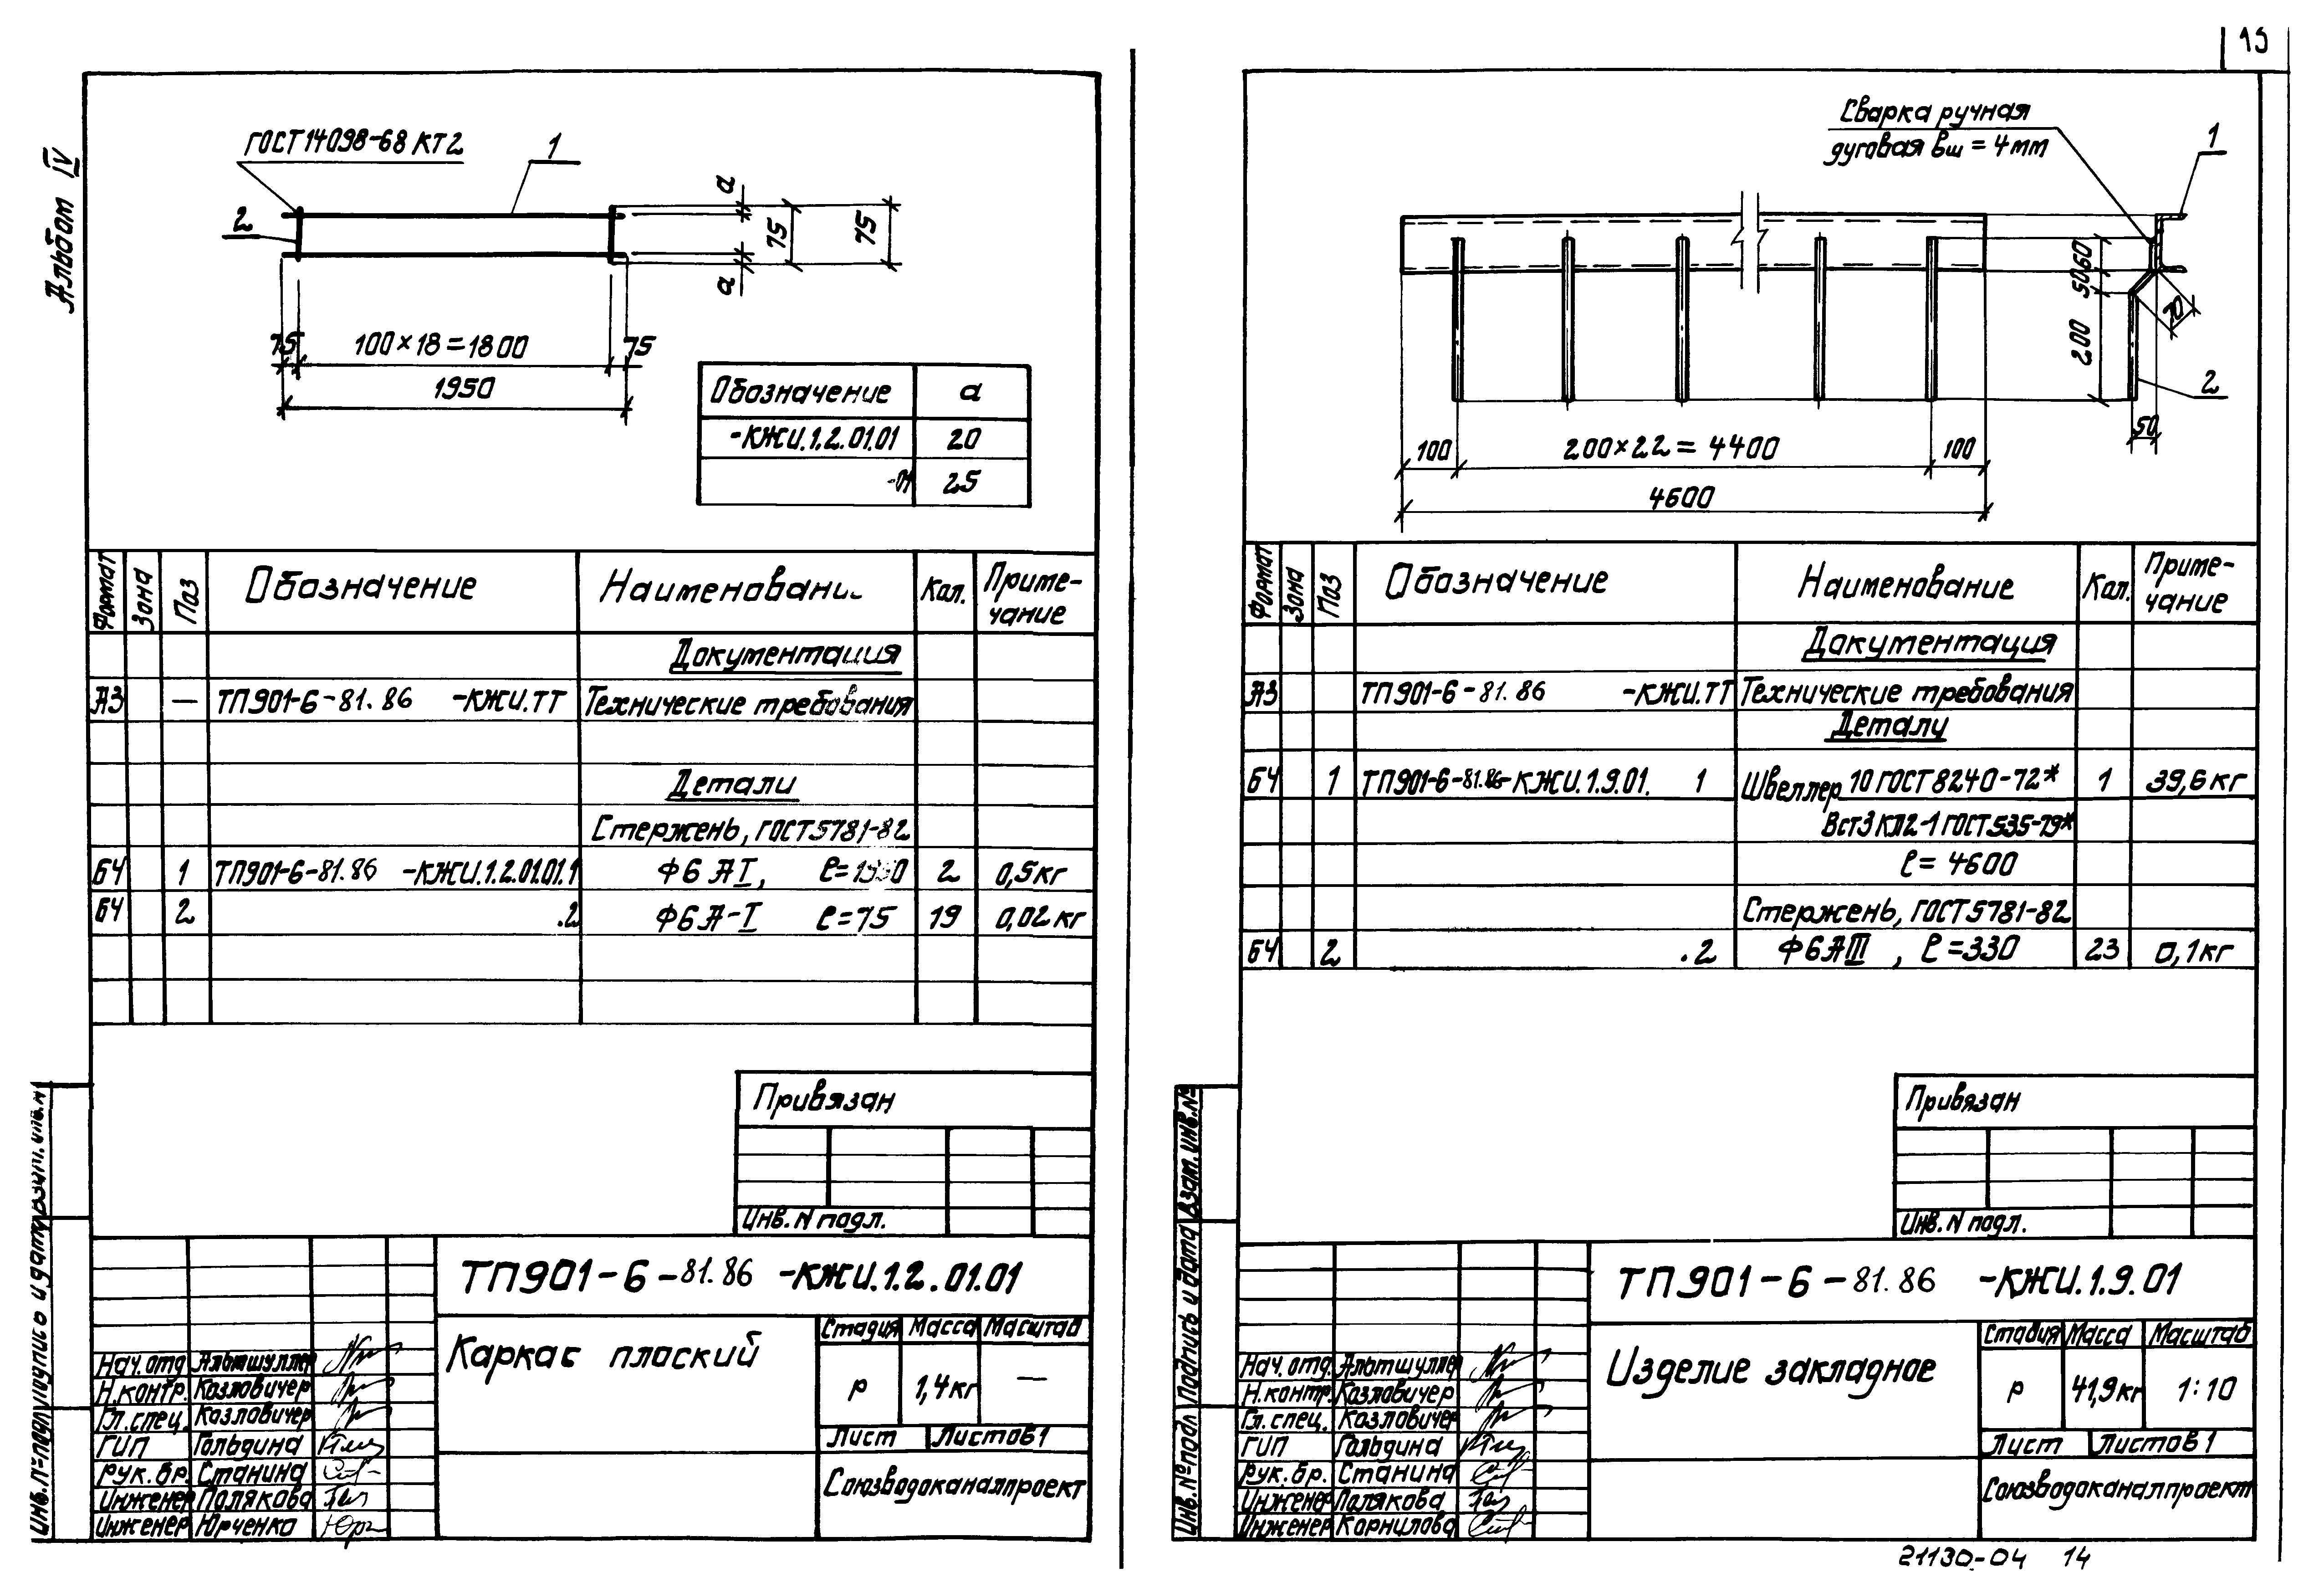 15
Альбом IV
ГОСТ 14098-68 КТ2
1
2
а
75
75
а
75
100×18=1800
75
1950
Обозначение а
-КЖИ.1.2.01.01 20
-01 25
Формат Зона Поз Обозначение Наименовани Кол. Приме-
чание
Документация
А3 — ТП901-6-81.86 -КЖИ.ТТ Технические требования
Детали
Стержень, ГОСТ 5781-82
БЧ 1 ТП901-6-81.86 -КЖИ.1.2.01.01.1 Ф6 АI, ℓ=1950 2 0,5кг
БЧ 2 .2 Ф6 А-I ℓ=75 19 0,02кг
Привязан
Инв. N подл.
ТП901-6-81.86 -КЖИ.1.2.01.01
Каркас плоский
Стадия Масса Масштаб
р 1,4кг —
Лист Листов 1
Союзводоканалпроект
Нач.отд Альтшуллер
Н.контр. Козловичер
Гл.спец. Козловичер
ГИП Гольдина
Рук.бр. Станина
Инженер Полякова
Инженер Юрченко
Инв.№подл Подпись и дата Взам. инв. N
Сварка ручная
дуговая вш = 4мм
1
60
50
200
70
2
50
100
200×22 = 4400
100
4600
Формат Зона Поз Обозначение Наименование Кол. Приме-
чание
Документация
А3 ТП901-6-81.86 -КЖИ.ТТ Технические требования
Детали
БЧ 1 ТП901-6-81.86-КЖИ.1.9.01. 1 Швеллер 10 ГОСТ 8240-72* 1 39,6кг
Вст3 КП2-1 ГОСТ 535-79*
ℓ= 4600
Стержень, ГОСТ 5781-82
БЧ 2 .2 Ф6АIII , ℓ=330 23 0,1кг
Привязан
Инв. N подл.
ТП901-6-81.86 -КЖИ.1.9.01
Изделие закладное
Стадия Масса Масштаб
р 41,9кг 1:10
Лист Листов 1
Союзводоканалпроект
Нач.отд. Альтшуллер
Н.контр. Козловичер
Гл.спец. Козловичер
ГИП Гольдина
Рук.бр. Станина
Инженер Полякова
Инженер Корнилова
Инв.№подл Подпись и дата Взам.инв.№
21130-04 14